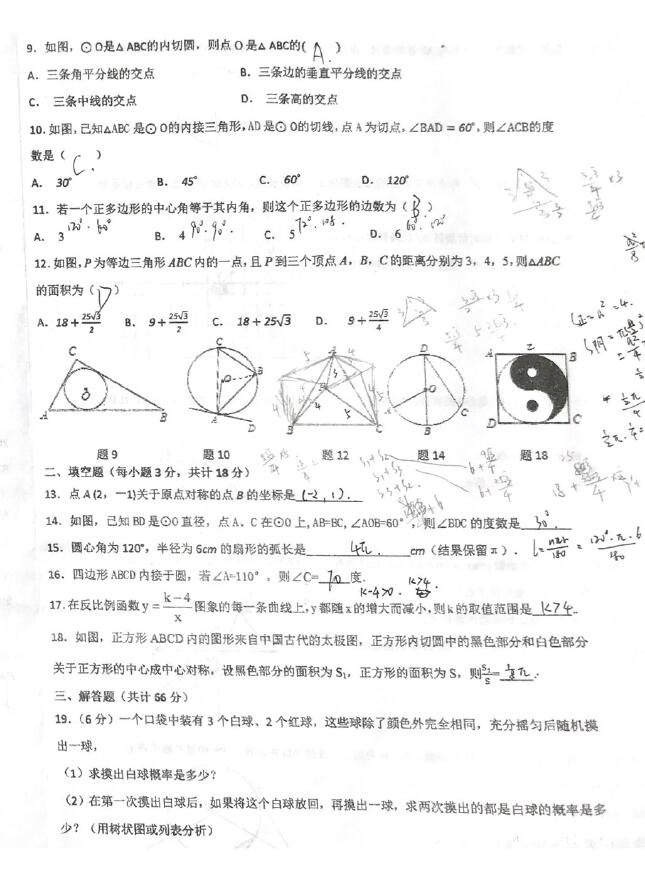 9. 如图，⊙O是△ABC的内切圆，则点O是△ABC的( A. )
A. 三条角平分线的交点 B. 三条边的垂直平分线的交点
C. 三条中线的交点 D. 三条高的交点
10. 如图, 已知△ABC 是⊙O的内接三角形, AD是⊙O的切线, 点 A 为切点, ∠BAD = 60°, 则∠ACB的度
数是（ C. ）
A. 30° B. 45° C. 60° D. 120°
11. 若一个正多边形的中心角等于其内角，则这个正多边形的边数为（ B ）
A. 3 120° 60° B. 4 90° 90° C. 5 72° 108 D. 6 60° 120°
12. 如图, P为等边三角形ABC内的一点, 且P到三个顶点A, B, C的距离分别为3, 4, 5, 则△ABC
的面积为（ D ）
A. 18+25√3/2 B. 9+25√3/2 C. 18+25√3 D. 9+25√3/4
C A B
C O B A D
A B C
D O A B C
A 2 B D C
题9 题10 题12 题14 题18
二、填空题（每小题3分，共计18分）
13. 点A(2，—1)关于原点对称的点B的坐标是 (-2, 1).
14. 如图，已知BD是⊙O直径，点A、C在⊙O上, AB=BC, ∠AOB=60°，则∠BDC的度数是 30°
15. 圆心角为120°，半径为6cm的扇形的弧长是 4π. cm（结果保留π）. l= nπr/180 = 120°·π·6/180
16. 四边形ABCD内接于圆，若∠A=110°，则∠C= 70 度.
k-4>0. k>4
17. 在反比例函数 y = k−4/x 图象的每一条曲线上, y都随x的增大而减小, 则k的取值范围是 k>4.
18. 如图，正方形ABCD内的图形来自中国古代的太极图，正方形内切圆中的黑色部分和白色部分
关于正方形的中心成中心对称，设黑色部分的面积为S₁，正方形的面积为S，则S₁/S= 1/8 π.
三、解答题（共计66分）
19.（6分）一个口袋中装有3个白球、2个红球，这些球除了颜色外完全相同，充分摇匀后随机摸
出一球，
（1）求摸出白球概率是多少？
（2）在第一次摸出白球后，如果将这个白球放回，再摸出一球，求两次摸出的都是白球的概率是多
少？（用树状图或列表分析）